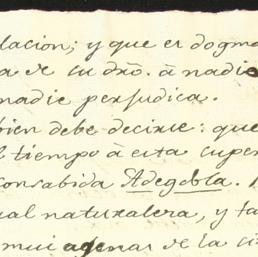 lacion; y que es dogma
a de su dro. â nadie
nadie perjudica.
bien debe decirse: que
l tiempo â esta super
consabida Adegdbla.
ual naturaleza, y ta
mui agenas de la ci